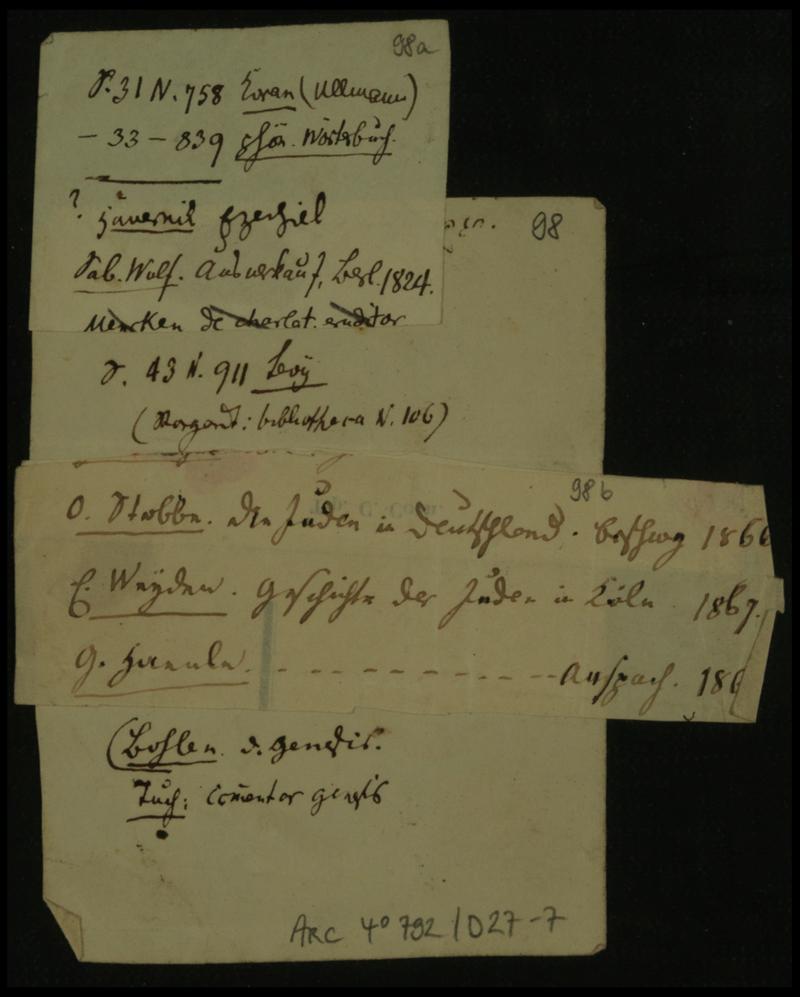 98a
S. 31 N. 758 Koran (Ullmann)
– 33 – 839 phön. Wörterbuch.
? Hävernik Ezechiel
98
Sab. Wolf. Ausverkauf, Berl. 1824.
Mencken de charlat. eruditor
S. 43 N. 911 Levy
bibliotheca N. 106)
98b
O. Stobbe. die Juden in Deutschland. Brschwg 1866
E. Weyden. Geschichte der Juden in Köln 1867.
G. Haenle. - - - - - - - - - - - - Anspach. 186
(Bohlen. d. Genesis.
Tuch: Comentar Genesis
ARC 4° 792 / D27-7